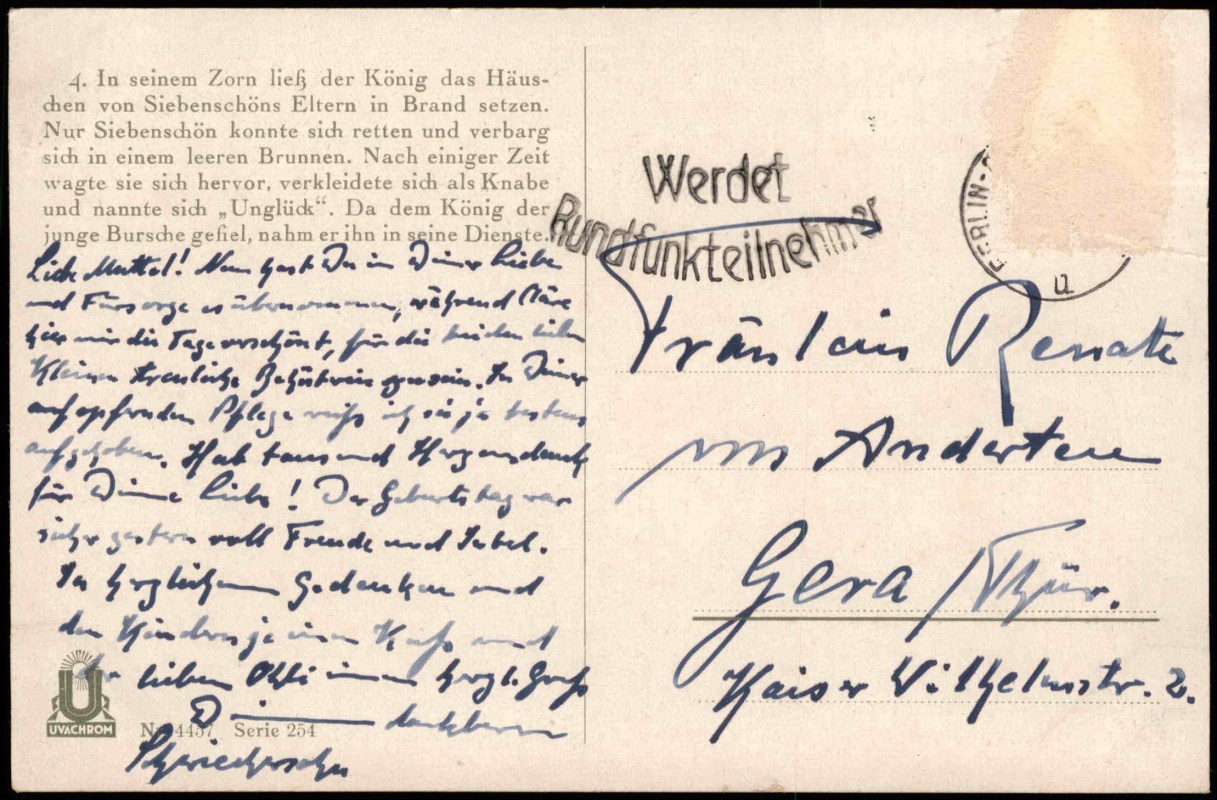 4. In seinem Zorn ließ der König das Häus-
chen von Siebenschöns Eltern in Brand setzen.
Nur Siebenschön konnte sich retten und verbarg
sich in einem leeren Brunnen. Nach einiger Zeit
wagte sie sich hervor, verkleidete sich als Knabe
und nannte sich „Unglück“. Da dem König der
junge Bursche gefiel, nahm er ihn in seine Dienste.
Liebe Muttel! Nun hast Du in Deiner Liebe
und Fürsorge es übernommen, während
hier mir die Tage verschönt, für die beiden lieben
Kleinen treuliche zu sein. In Deiner
aufopfernden Pflege weiß ich sie ja bestens
aufgehoben. Hab tausend Herzensdank
für Deine Liebe! Der Geburtstag war
gestern voll Freude und Jubel.
In herzlichem Gedenken und
den Kindern je einen Kuß und
der lieben einen herzl. Gruß
D dankbarer
Schwiegersohn
UVACHROM
Nr. 4457 Serie 254
Werdet
Rundfunkteilnehmer
BERLIN
u
Fräulein Renate
von Anderten
Gera / Thür.
Kaiser Wilhelmstr. 2.